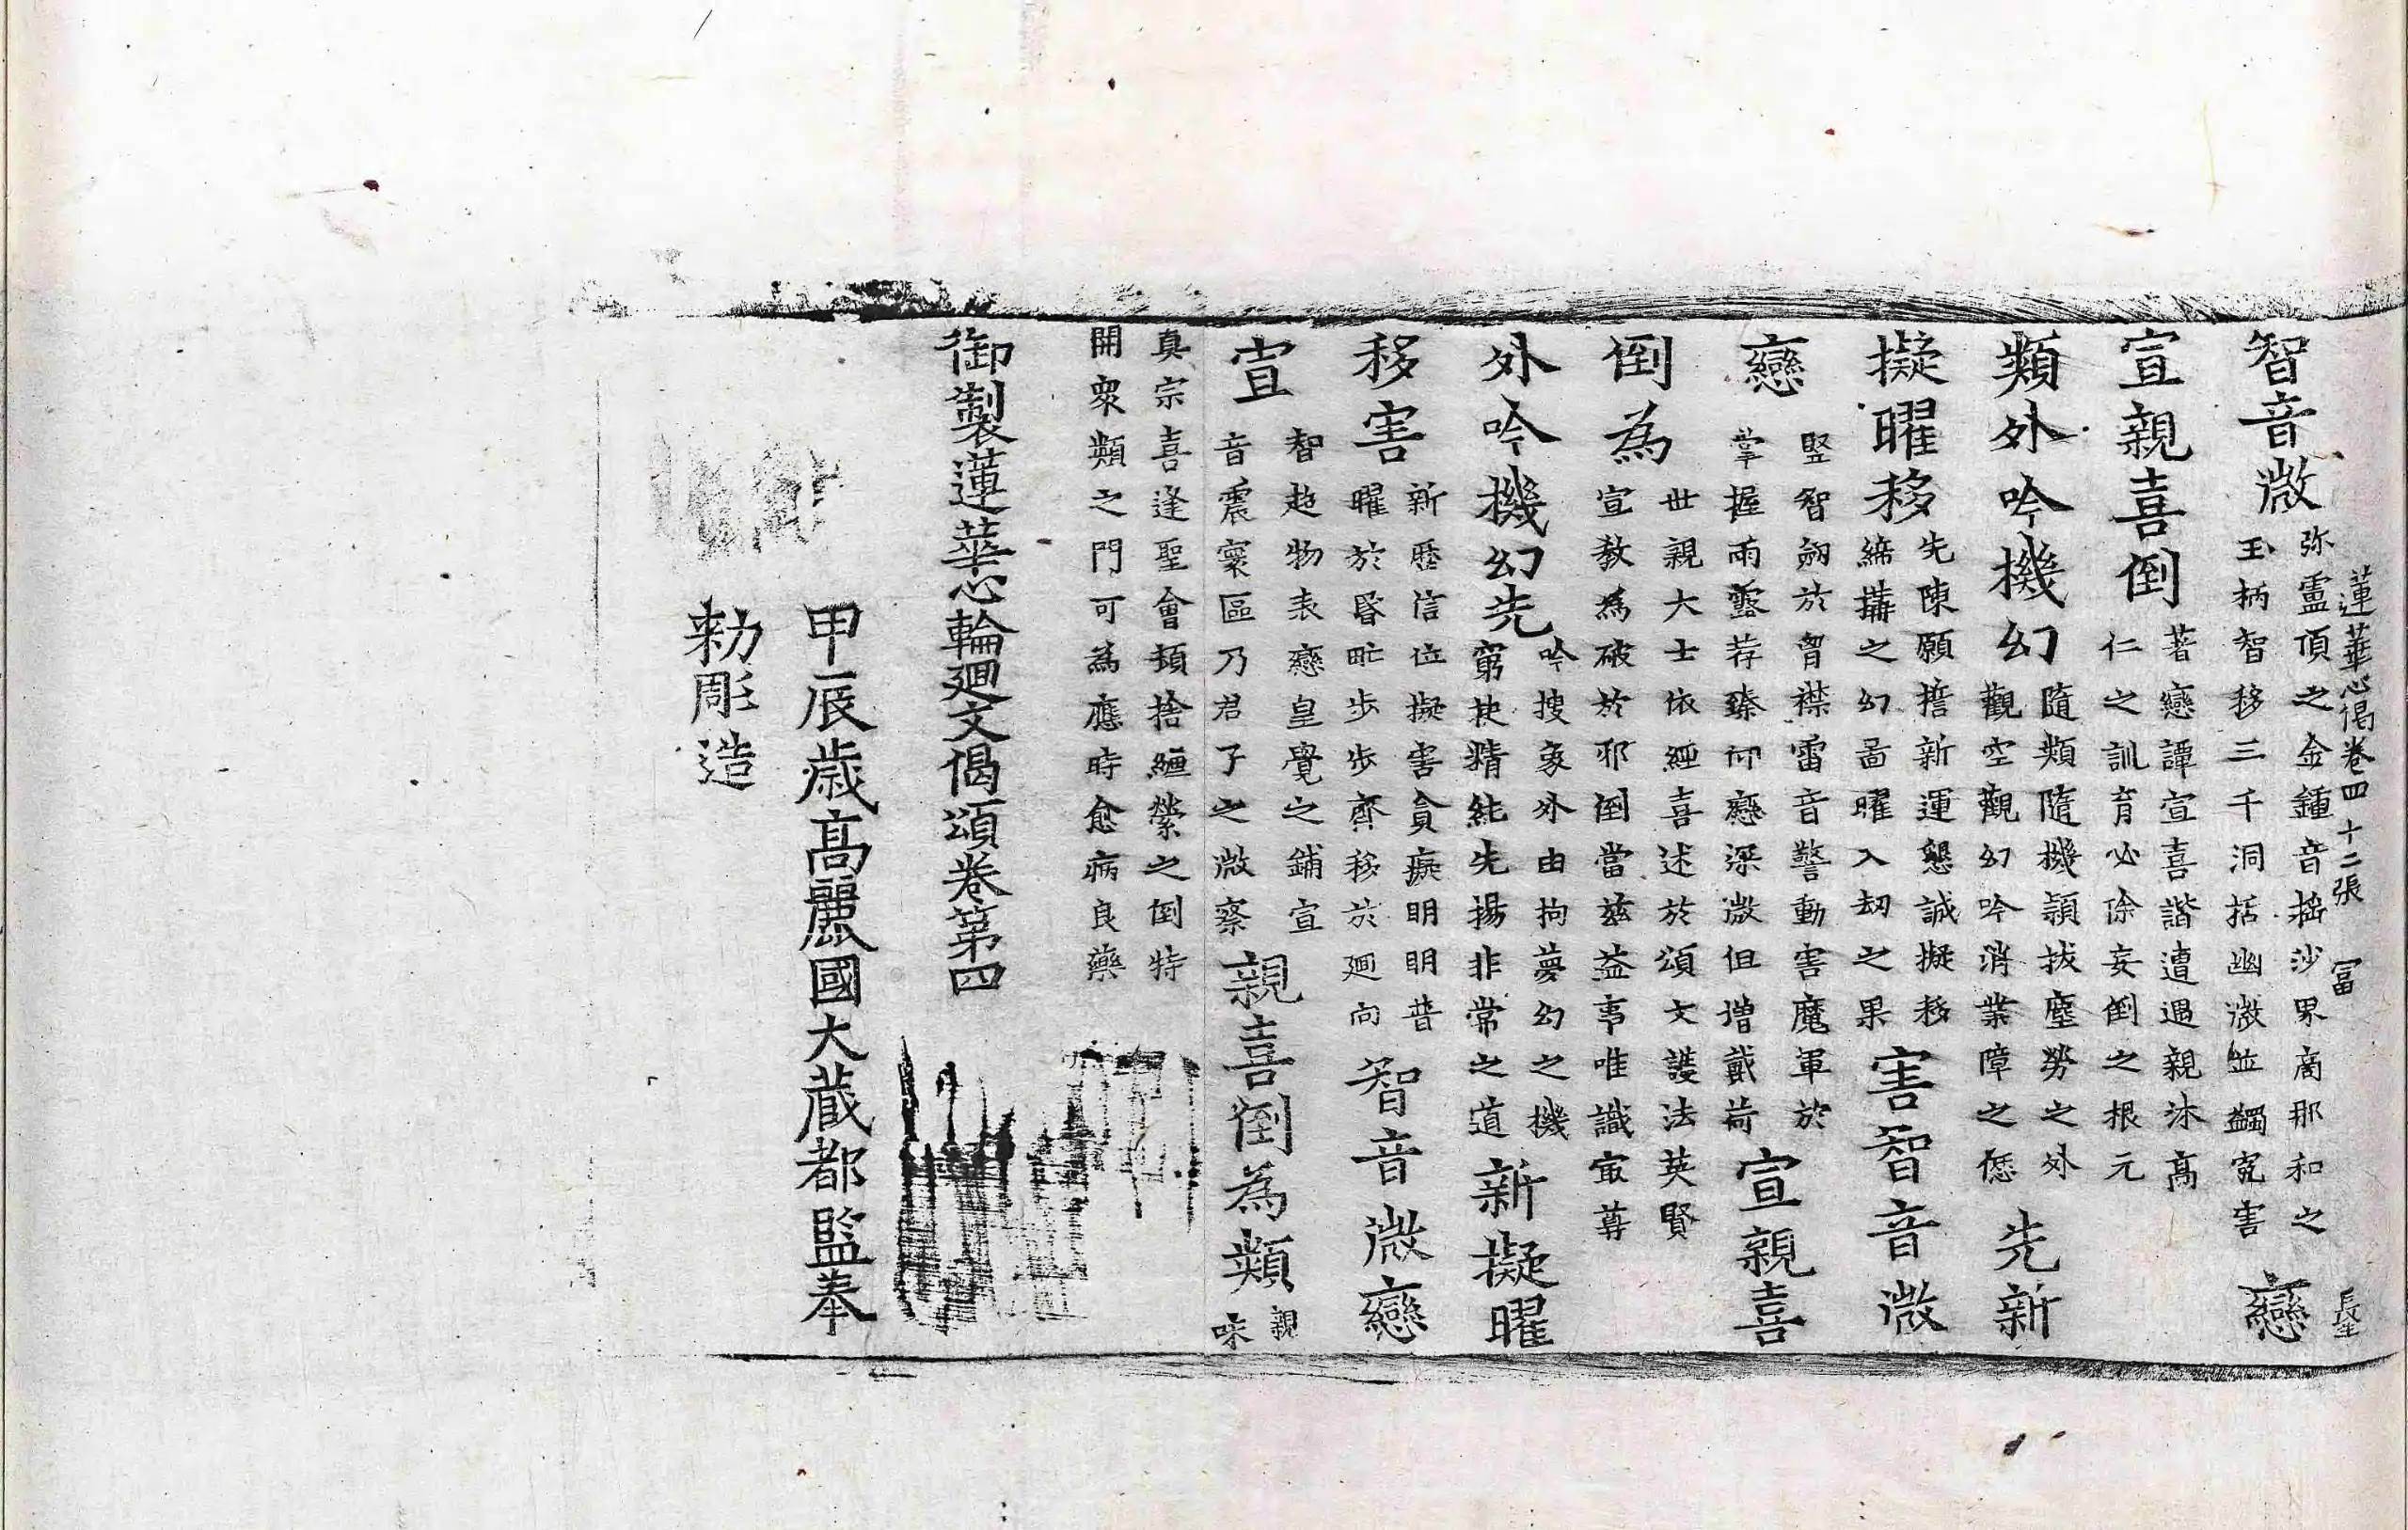 蓮華心偈卷四 十二張 冨 長生
智音微 弥盧頂之金鍾音摇沙界啇那和之
玉柄智移三千洞括幽微並蠲寃害 戀
宣親喜倒 著戀譚宣喜諧遭遇親沐髙
仁之訓育必除妄倒之根元
類外吟機幻 隨類隨機頴拔塵勞之外
觀空觀幻吟消業障之愆 先新
擬曜移 先陳願擔新運懇誠擬移
締搆之幻啚曜入刼之果 害智音微
戀 竪智劒於胷襟雷音警動害魔軍於
掌握雨露荐臻仰戀深微但增戴荷 宣親喜
倒為 世親大士依經喜述於頌文護法英賢
宣教為破於邪倒當兹益事唯識㝡尊
外吟機幻先 吟搜象外由拘夢幻之機
窮抉精純先揚非常之道 新擬曜
移害 新歷信位擬害貪癡明明普
曜於昏䀮步步齊移於廻向 智音微戀
宣 智超物表戀皇覺之鋪宣
音震寰區乃君子之微察 親喜倒為類 親
味
真宗喜逢聖會頓捨纏縈之倒特
開衆類之門可為應時愈病良藥
御製蓮華心輪廻文偈頌卷第四
甲辰歳髙麗國大藏都監奉
勑彫造